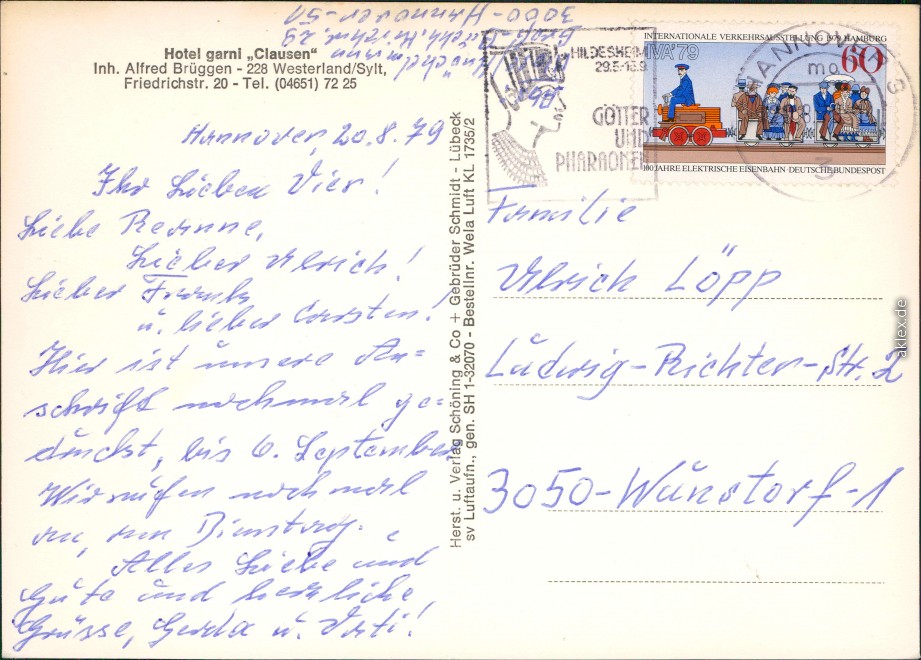 3000-Hannover-51
Hotel garni „Clausen"
Inh. Alfred Brüggen - 228 Westerland/Sylt,
Friedrichstr. 20 - Tel. (04651) 72 25
Hannover, 20.8.79
Ihr Lieben Vier!
Liebe
Lieber Ulrich!
Lieber Frank
u. lieber Carsten!
Hier ist unsere An=
schrift nochmal ge=
druckt, bis 6. September
Wir rufen nochmal
an, am Dienstag.
Alles Liebe und
Gute und herzliche
Grüsse, Gerda u.
Herst. u. Verlag Schöning & Co + Gebrüder Schmidt - Lübeck
sv Luftaufn., gen. SH 1-32070 - Bestellnr. Wela Luft KL 1735/2
HILDESHEIM
29.5-16.9.
GÖTTER
UND
PHARAONEN
INTERNATIONALE VERKEHRSAUSSTELLUNG 1979 HAMBURG
IVA'79
60
100 JAHRE ELEKTRISCHE EISENBAHN · DEUTSCHE BUNDESPOST
HANNOVER
3
Familie
Ulrich Löpp
Ludwig-Richter-Str. 2
3050-Wunstorf-1
aklex.de